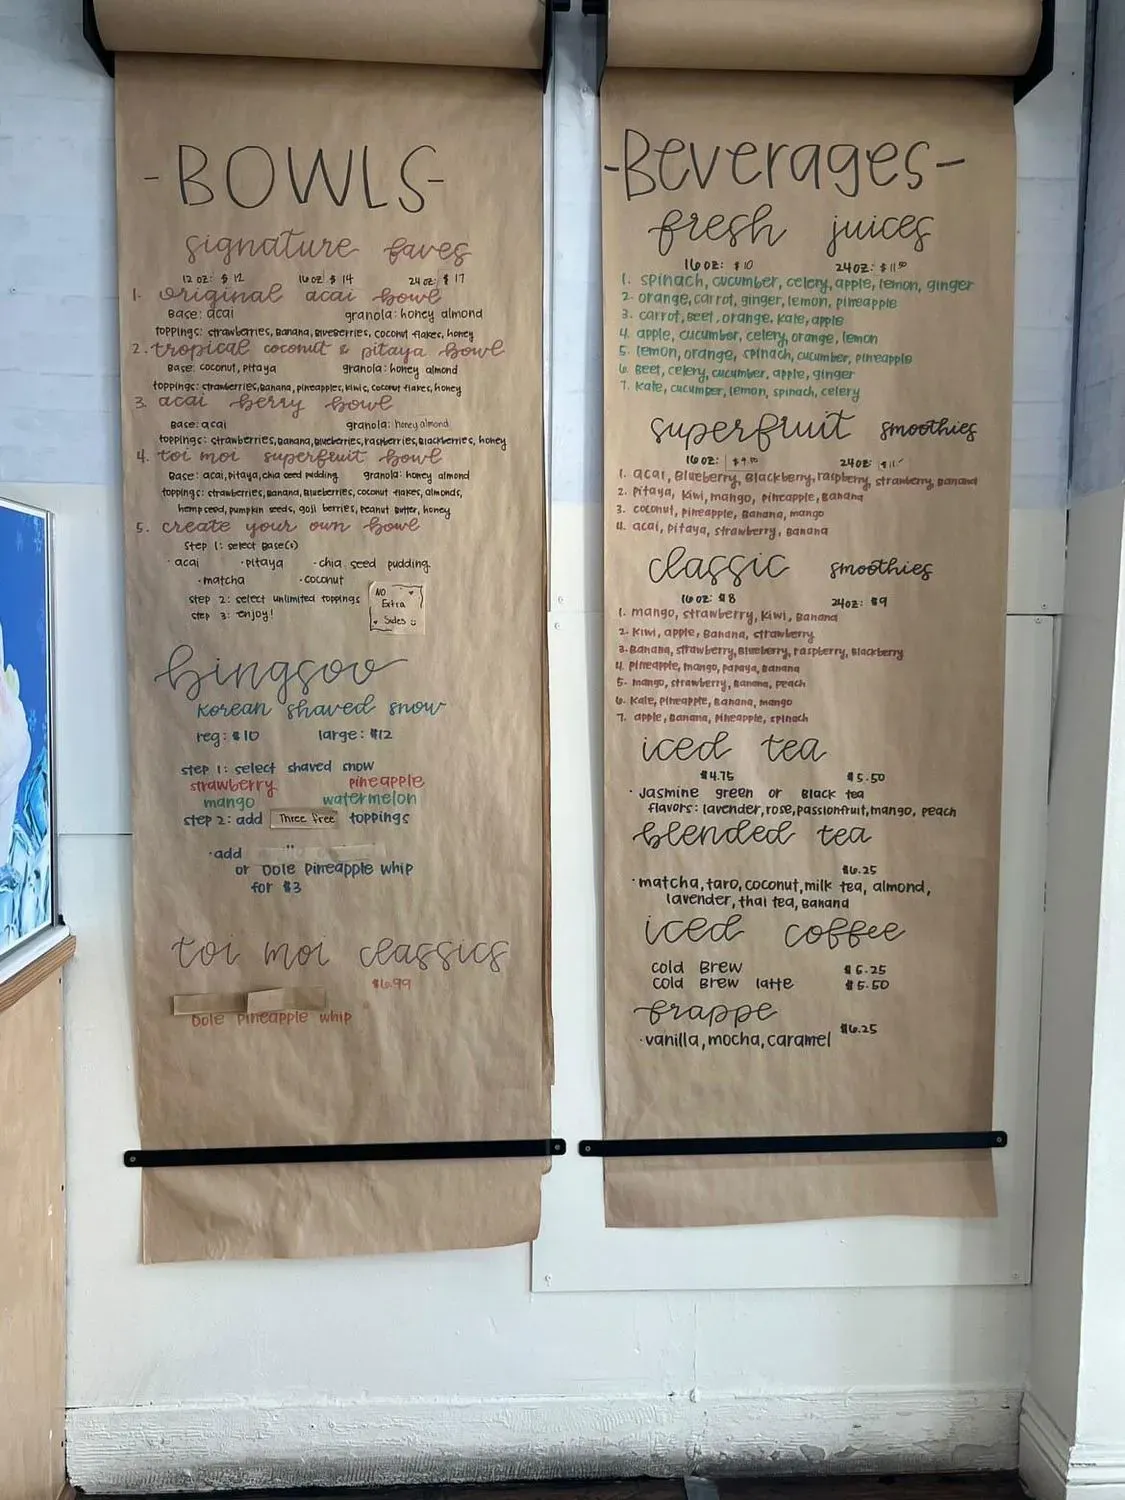 -BOWLS-
signature faves
12 oz: $12 16 oz: $14 24 oz: $17
1. original acai bowl
Base: acai granola: honey almond
toppings: strawberries, Banana, Blueberries, coconut flakes, honey
2. tropical coconut & pitaya bowl
Base: coconut, pitaya granola: honey almond
toppings: strawberries, Banana, pineapples, kiwi, coconut flakes, honey
3. acai berry bowl
Base: acai granola: honey almond
toppings: strawberries, Banana, Blueberries, raspberries, Blackberries, honey
4. toi moi superfruit bowl
Base: acai, pitaya, chia seed pudding granola: honey almond
toppings: strawberries, Banana, Blueberries, coconut flakes, almonds,
hemp seed, pumpkin seeds, goji berries, peanut butter, honey
5. create your own bowl
Step 1: select Base(s)
· acai · pitaya · chia seed pudding
· matcha · coconut
step 2: select unlimited toppings
step 3: enjoy!
NO
Extra
Sides
bingsoo
Korean shaved snow
reg: $10 large: $12
step 1: select shaved snow
strawberry pineapple
mango watermelon
step 2: add Three free toppings
· add
or Dole Pineapple whip
for $3
toi moi classics
$6.99
Dole Pineapple whip
-Beverages-
fresh juices
16 oz: $10 24 oz: $11.50
1. spinach, cucumber, celery, apple, lemon, ginger
2. orange, carrot, ginger, lemon, pineapple
3. carrot, Beet, orange, Kale, apple
4. apple, cucumber, celery, orange, lemon
5. lemon, orange, spinach, cucumber, pineapple
6. Beet, celery, cucumber, apple, ginger
7. Kale, cucumber, lemon, spinach, celery
superfruit smoothies
16 oz: 24 oz:
1. acai, Blueberry, Blackberry, raspberry, strawberry, Banana
2. Pitaya, Kiwi, mango, Pineapple, Banana
3. coconut, pineapple, Banana, mango
4. acai, pitaya, strawberry, Banana
classic smoothies
16 oz: $8 24 oz: $9
1. mango, strawberry, Kiwi, Banana
2. Kiwi, apple, Banana, strawberry
3. Banana, strawberry, Blueberry, raspberry, Blackberry
4. Pineapple, mango, papaya, Banana
5. mango, strawberry, Banana, peach
6. Kale, Pineapple, Banana, mango
7. apple, Banana, Pineapple, spinach
iced tea
$4.75 $5.50
· Jasmine green or Black tea
flavors: lavender, rose, passionfruit, mango, peach
blended tea
$6.25
· matcha, taro, coconut, milk tea, almond,
lavender, thai tea, Banana
iced coffee
cold Brew $5.25
cold Brew latte $5.50
frappe
$6.25
· vanilla, mocha, caramel